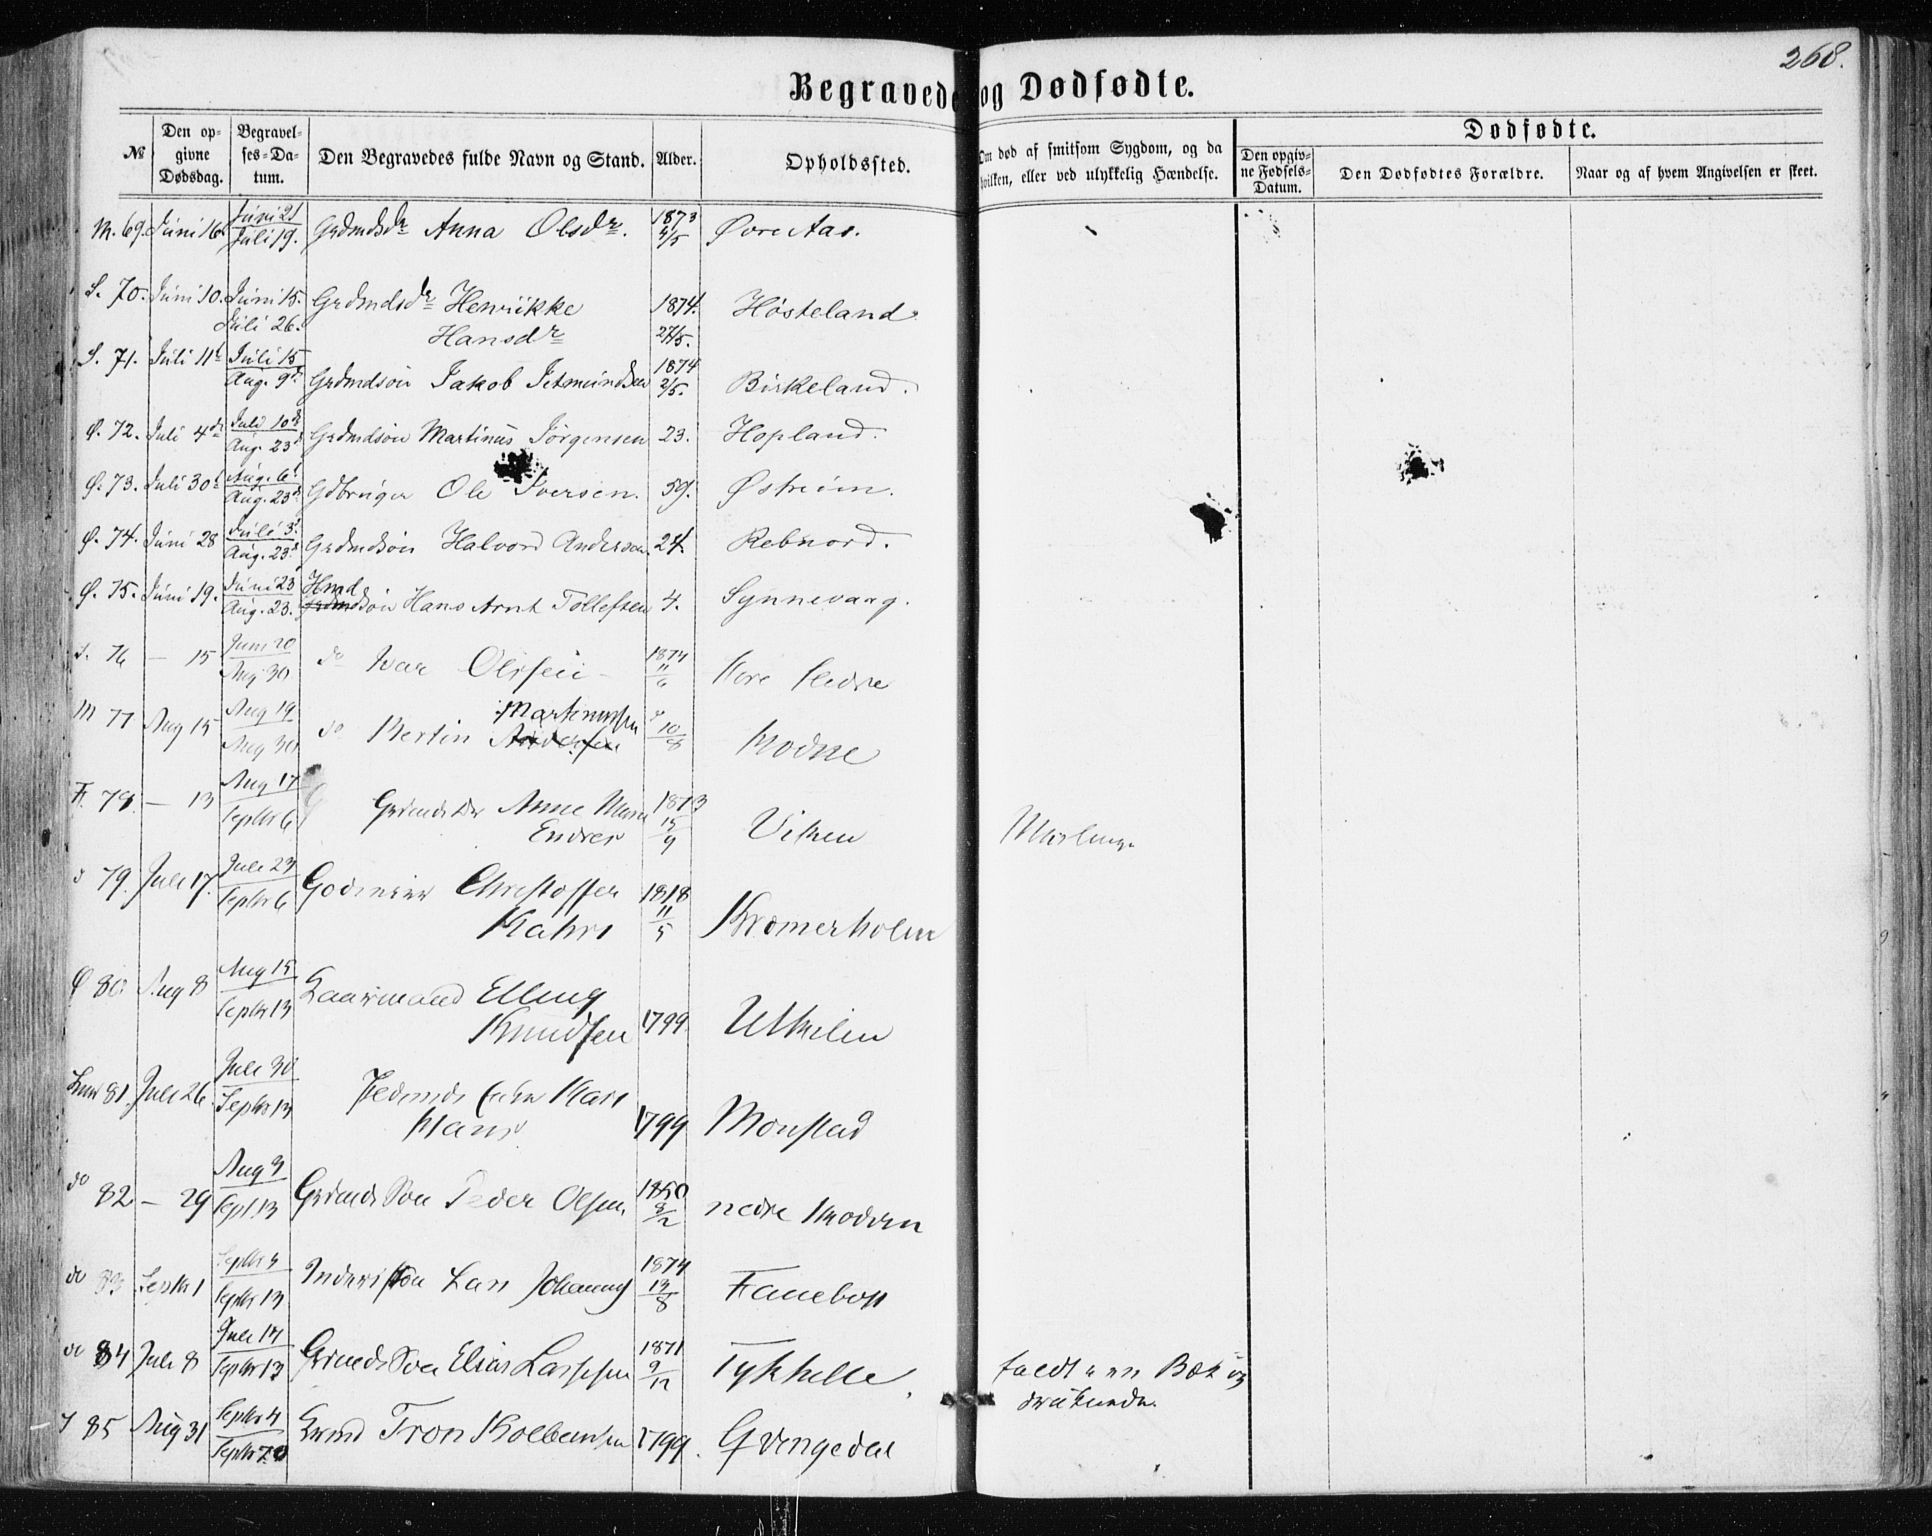 268.
Begravede og Dødfødte.
№
Den opgivne Dødsdag.
Begravelses-Datum.
Den Begravedes fulde Navn og Stand.
Alder.
Opholdssted.
Om død af smitsom Sygdom, og da hvilken, eller ved ulykkelig Hændelse.
Dødfødte.
Den opgivne Fødsels-Datum.
Den Dødfødtes Forældre.
Naar og af hvem Angivelsen er skeet.
M. 69. Juni 16 Juni 21 Juli 19. Grdmdsdr Anna Olsdr. 1873 4/5 Øvre Aas.
S. 70. Juni 10. Juni 15. Juli 26. Grdmdsdr Henrikke Hansdr 1874. 27/5. Høsteland
S. 71. Juli 11t Juli 15 Aug. 9d Grdmdsøn Jakob Jetmundsen 1874 2/5. Birkeland.
Ø. 72. Juli 4de Juli 10d Aug. 23d Grdmdsøn Martinus Jörgensen 23. Hopland.
Ø. 73. Juli 30t Aug. 6t Aug. 23d Gdbruger Ole Iversen. 59. Østreim.
Ø. 74. Juni 28 Juli 3d Aug. 23d Grdmdsøn Halvord Andersen. 24. Rebnord.
Ø. 75. Juni 19. Juni 23 Aug. 23. Hmdsøn Hans Arnt Tollefsen 4. Synnevaag.
S. 76 — 15 Juni 20 Aug 30 do Ivar Olssen 1874 11/6
M 77 Aug 15 Aug 19 Aug 30 do Bertin Martinussen 10/8
F. 78 — 13 Aug 17 Septbr 6 Grdmds Dtr Anne Marie Endres 1873 15/9 Viken
79. Juli 17. Juli 23 Septbr 6 Christoffer Kahrs 1818 11/5 Kræmerholm
Ø 80. Aug 8 Aug 15 Septbr 13 Kaarmand Elling Knudsen 1799. Utkilen
81. Juli 26. Juli 30 Septbr 13 Kari Hans 1799 Monstad
do 82 — 29 Aug 3 Sept. 13 Grdmds Søn Peder Olsen 1850 nedre
do 83 Septbr 1 Septbr 4 Septbr 13 Lars Johannes 1874 13/8 Fanebost
do 84 Juli 8 Juli 14 Septbr 13 Grdmds Søn Elias Lassesen 1871 9/12 Tykhelle. faldt i en Bæk og druknede.
85 Aug 31 Septbr 4 Grmd Tron Kolbensen 1799. Qvingedal